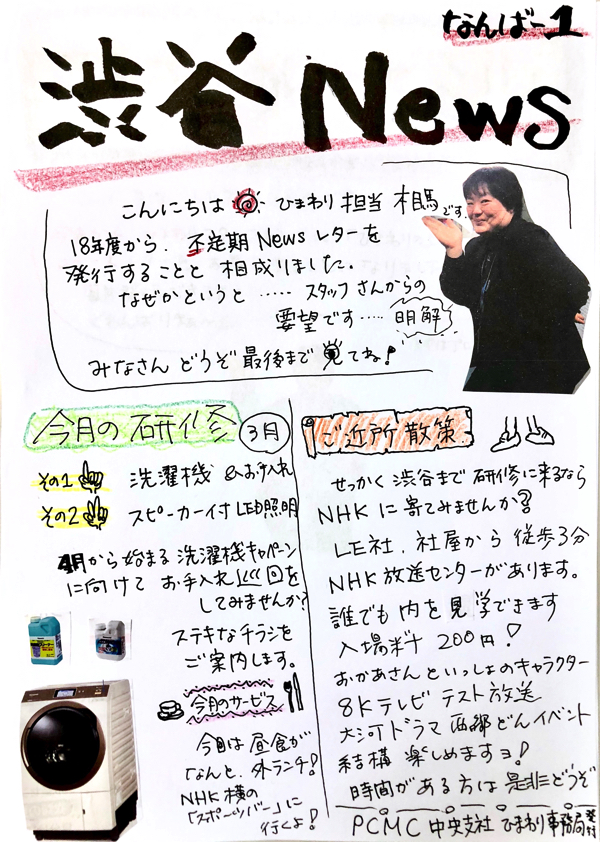 なんばー1
渋谷 News
こんにちは ひまわり担当 相馬です
18年度から、不定期 News レターを
発行することと 相成りました。
なぜかというと ‥‥‥ スタッフさんからの
要望です‥‥ 明解
みなさん どうぞ 最後まで 見てね!
今月の研修 3月
その1 洗濯機 &お手入れ
その2 スピーカー付LED照明
4月から始まる 洗濯機キャンペーン
に向けて お手入れ 回を
してみませんか?
ステキなチラシを
ご案内します。
今月のサービス
今回は 昼食が
なんと、外ランチ!
NHK横の
「スポーツバー」に
行くよ!
ご近所散策
せっかく 渋谷まで 研修に来るなら
NHKに寄てみませんか?
LE社、社屋から 徒歩3分
NHK放送センターがあります。
誰でも 内を 見学できます
入場料 200円!
おかあさんといっしょのキャラクター
8Kテレビ テスト放送
大河ドラマ 西郷どんイベント
結構 楽しめますョ!
時間がある方は 是非どうぞ
PCMC 中央支社 ひまわり事務局発行